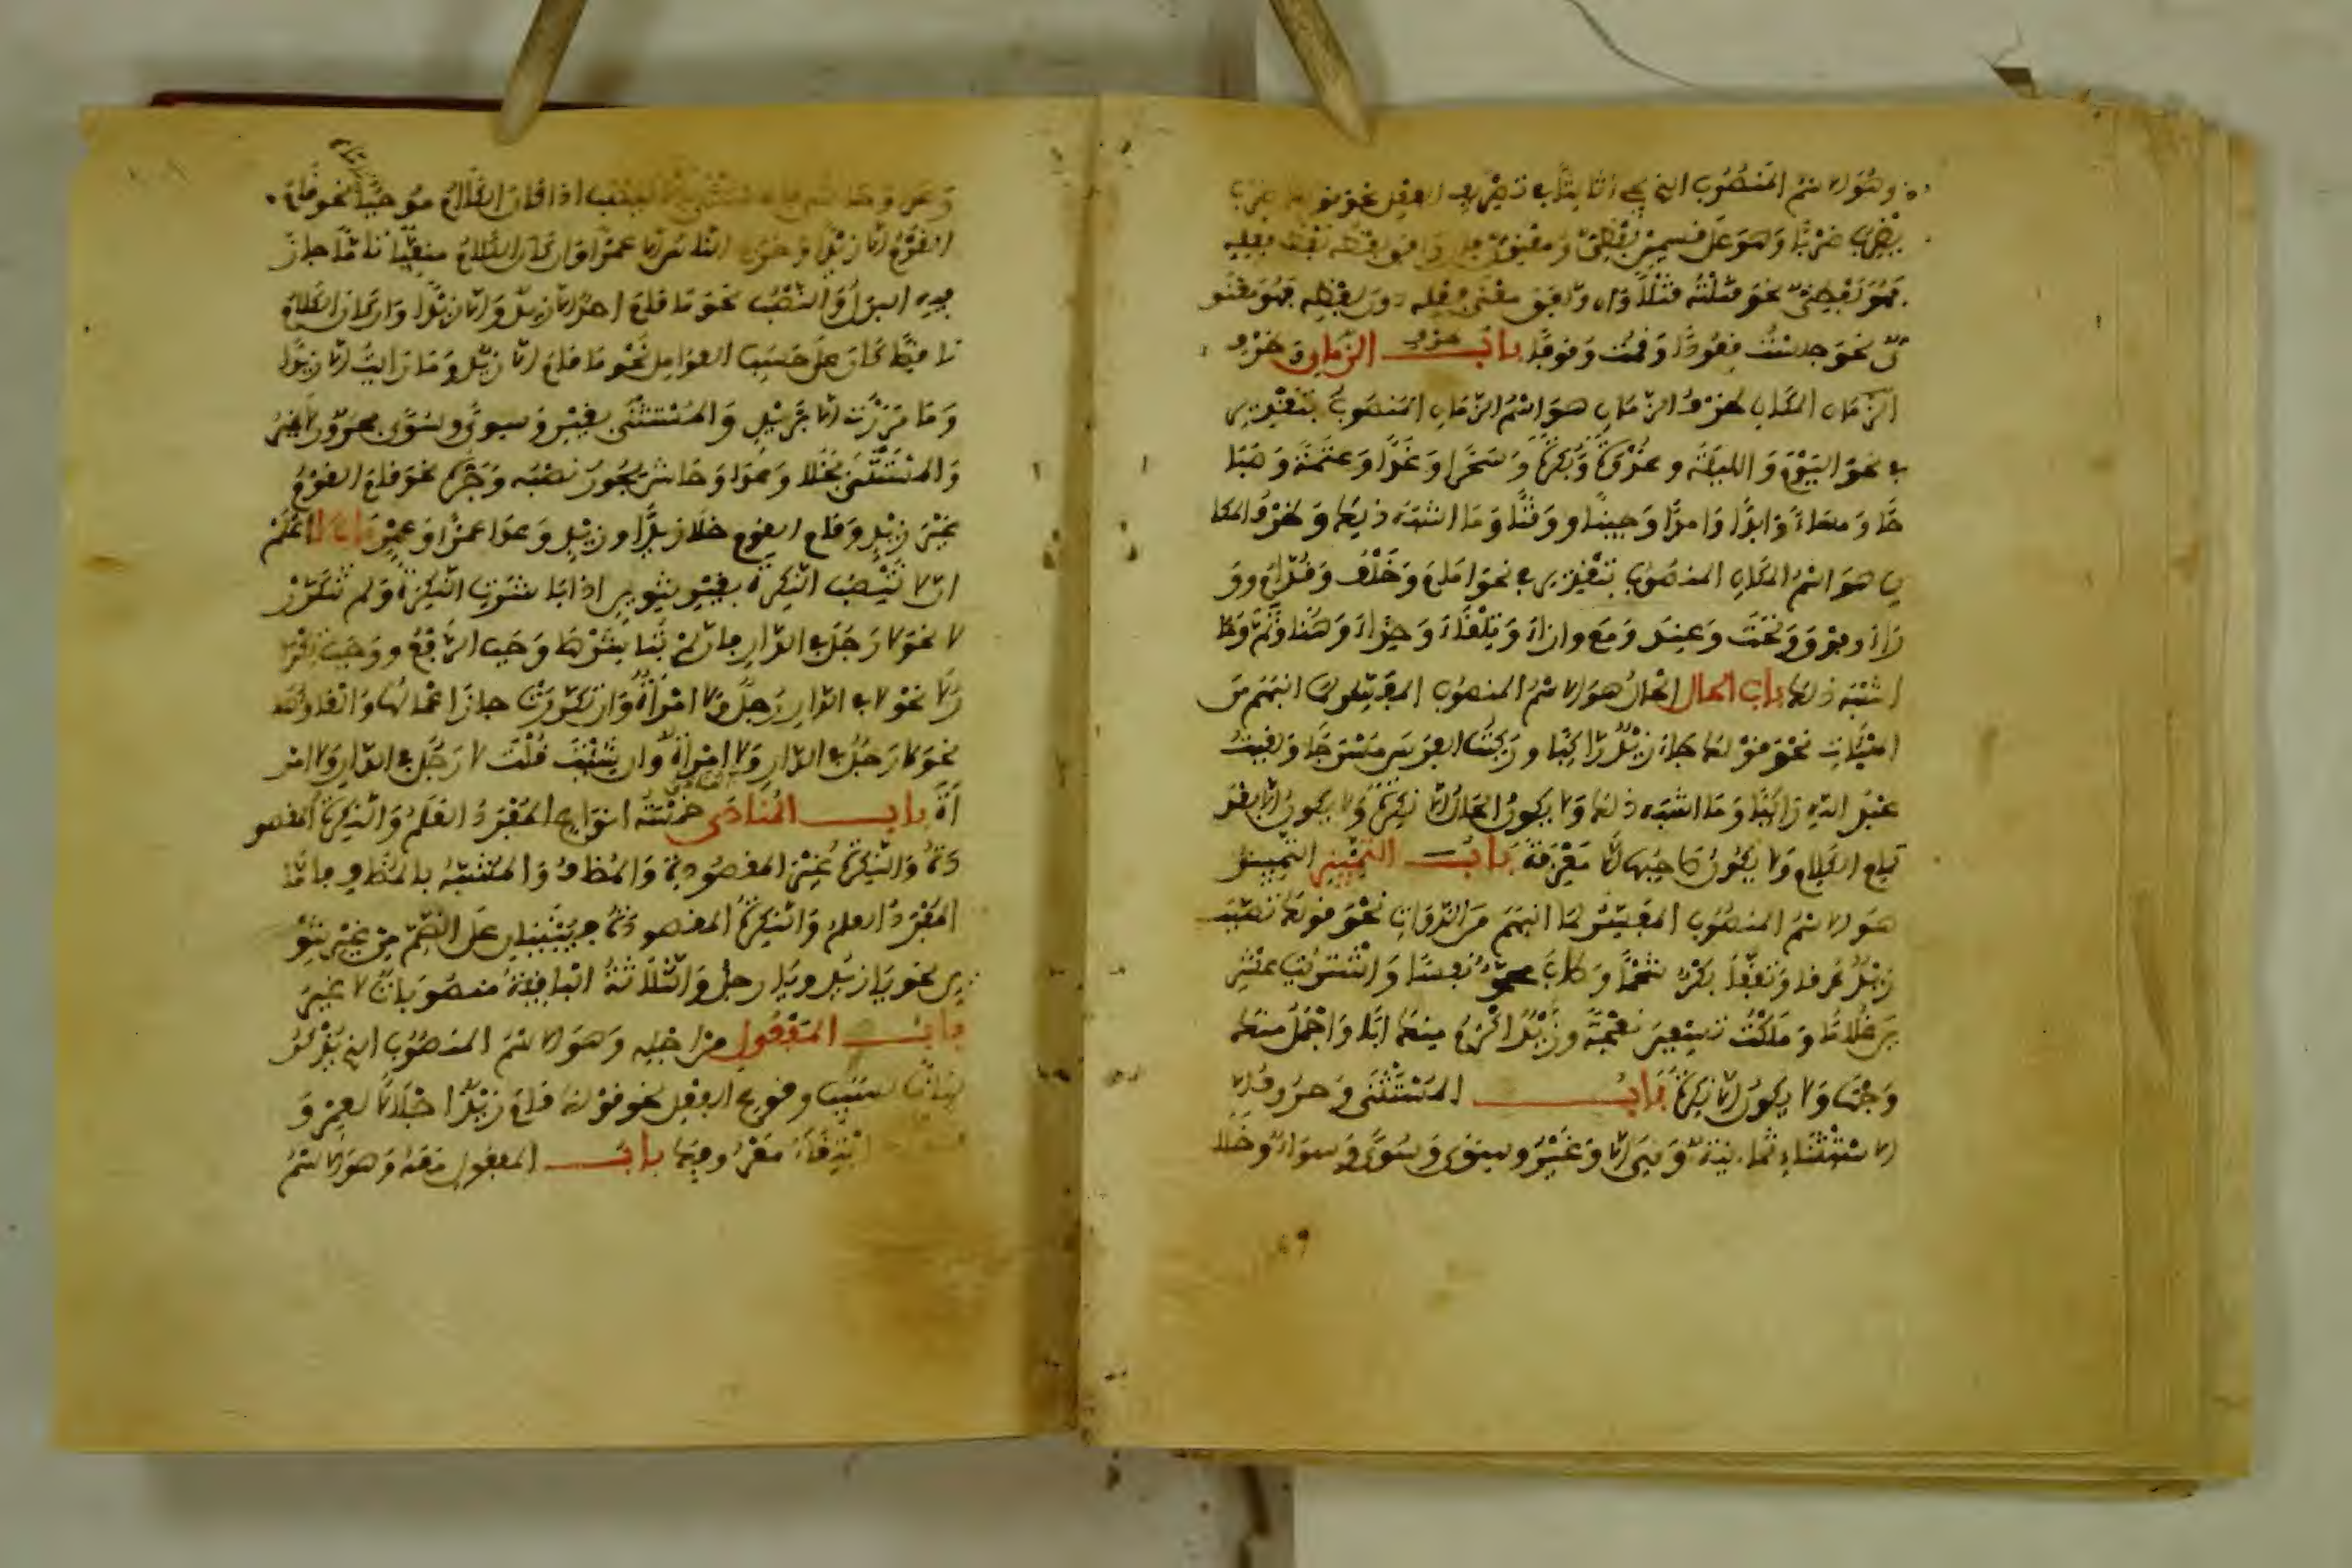 وهو الاسم المنصوب الذي يجيء ثالثا في تصريف الفعل نحو ضرب
يضرب ضربا وهو على قسمين لفظي ومعنوي فإن وافق لفظه لفظ فعله
فهو لفظي نحو قتلته قتلا وإن وافق معنى فعله دون لفظه فهو معنو
ي نحو جلست قعودا وقمت وقوفا باب ظرف الزمان وظرف
الزمان المكان ظرف الزمان هو اسم الزمان المنصوب بتقدير
في نحو اليوم والليلة وغدوة وبكرة وسحرا وغدا وعتمة وصبا
حا ومساء وأبدا وأمدا وحينا ووقتا وما اشبه ذلك وظرف المكا
ن هو اسم المكان المنصوب بتقدير في نحو امام وخلف وقدام وو
راء وفوق وتحت وعند ومع وازاء وتلقاء وحذاء وهنا وثم وما
اشبه ذلك باب الحال الحال هو الاسم المنصوب المفسر لما انبهم من
الهيئات نحو قولك جاء زيد راكبا وركبت الفرس مسرجا ولقيت
عبد الله راكبا وما اشبه ذلك ولا يكون الحال الا نكرة ولا يكون الا بعد
تمام الكلام ولا يكون صاحبها الا معرفة باب التمييز التمييز
هو الاسم المنصوب المفسر لما انبهم من الذوات نحو قولك تصبب
زيد عرقا وتفقأ بكر شحما وطاب محمد نفسا واشتريت عشر
ين غلاما وملكت تسعين نعجة وزيد اكرم منك ابا واجمل منك
وجها ولا يكون الا نكرة باب المستثنى وحروف
الاستثناء ثمانية وهي الا وغير وسوى وسوى وسواء وخلا
وعدا وحاشى فالمستثنى بالا ينصب اذا كان الكلام موجبا نحو قام
القوم الا زيدا وخرج الناس الا عمرا وان كان الكلام منفيا تاما جاز
فيه البدل والنصب نحو ما قام احد الا زيد والا زيدا وان كان الكلام
ناقصا كان على حسب العوامل نحو ما قام الا زيد وما رايت الا زيدا
وما مررت الا بزيد والمستثنى بغير وسوى وسوى مجرور لا غير
والمستثنى بخلا وعدا وحاشى يجوز نصبه وجره نحو قام القوم
غير زيد وقام القوم خلا زيدا وزيد وعدا عمرا وعمرو باب لا اعلم
ان لا تنصب النكرة بغير تنوين اذا باشرت النكرة ولم تتكرر
لا نحو لا رجل في الدار فان لم تباشرها وجب الرفع ووجب تكرا
ر لا نحو لا في الدار رجل ولا امرأة وان تكررت جاز اعمالها والغاؤها
نحو لا رجل في الدار ولا امرأة وان شئت قلت لا رجل في الدار ولا امر
أة باب المنادى خمسة انواع المفرد العلم والنكرة المقصو
دة والنكرة غير المقصودة والمضاف والمشبه بالمضاف فاما
المفرد العلم والنكرة المقصودة فيبنيان على الضم من غير تنو
ين نحو يا زيد ويا رجل والثلاثة الباقية منصوبات لا غير
باب المفعول من اجله وهو الاسم المنصوب الذي يذكر
بيانا لسبب وقوع الفعل نحو قولك قام زيد اجلالا لعمرو و
ابتغاء معروفك باب المفعول معه وهو الاسم